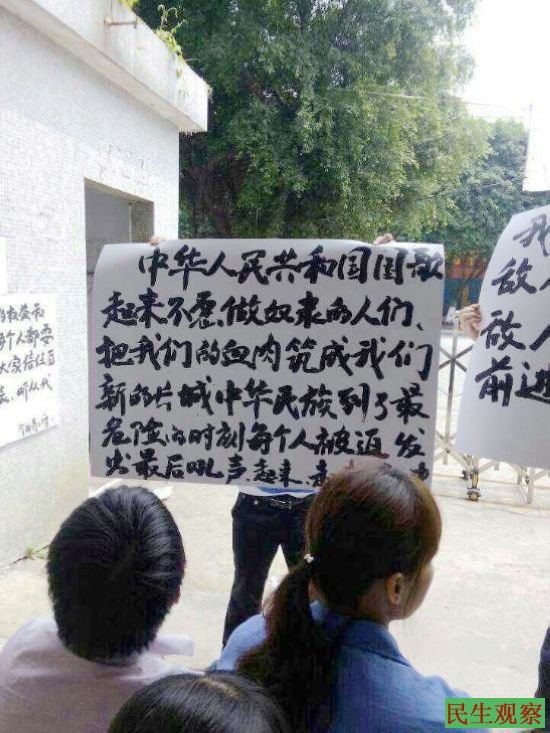 的权益和
每个人都要
听从代
中华人民共和国国歌
起来不愿做奴隶的人们、
把我们的血肉筑成我们
新的长城中华民族到了最
危险的时刻每个人被迫发
出最后吼声.起来.
我
敌人
敌人
前进
民生观察